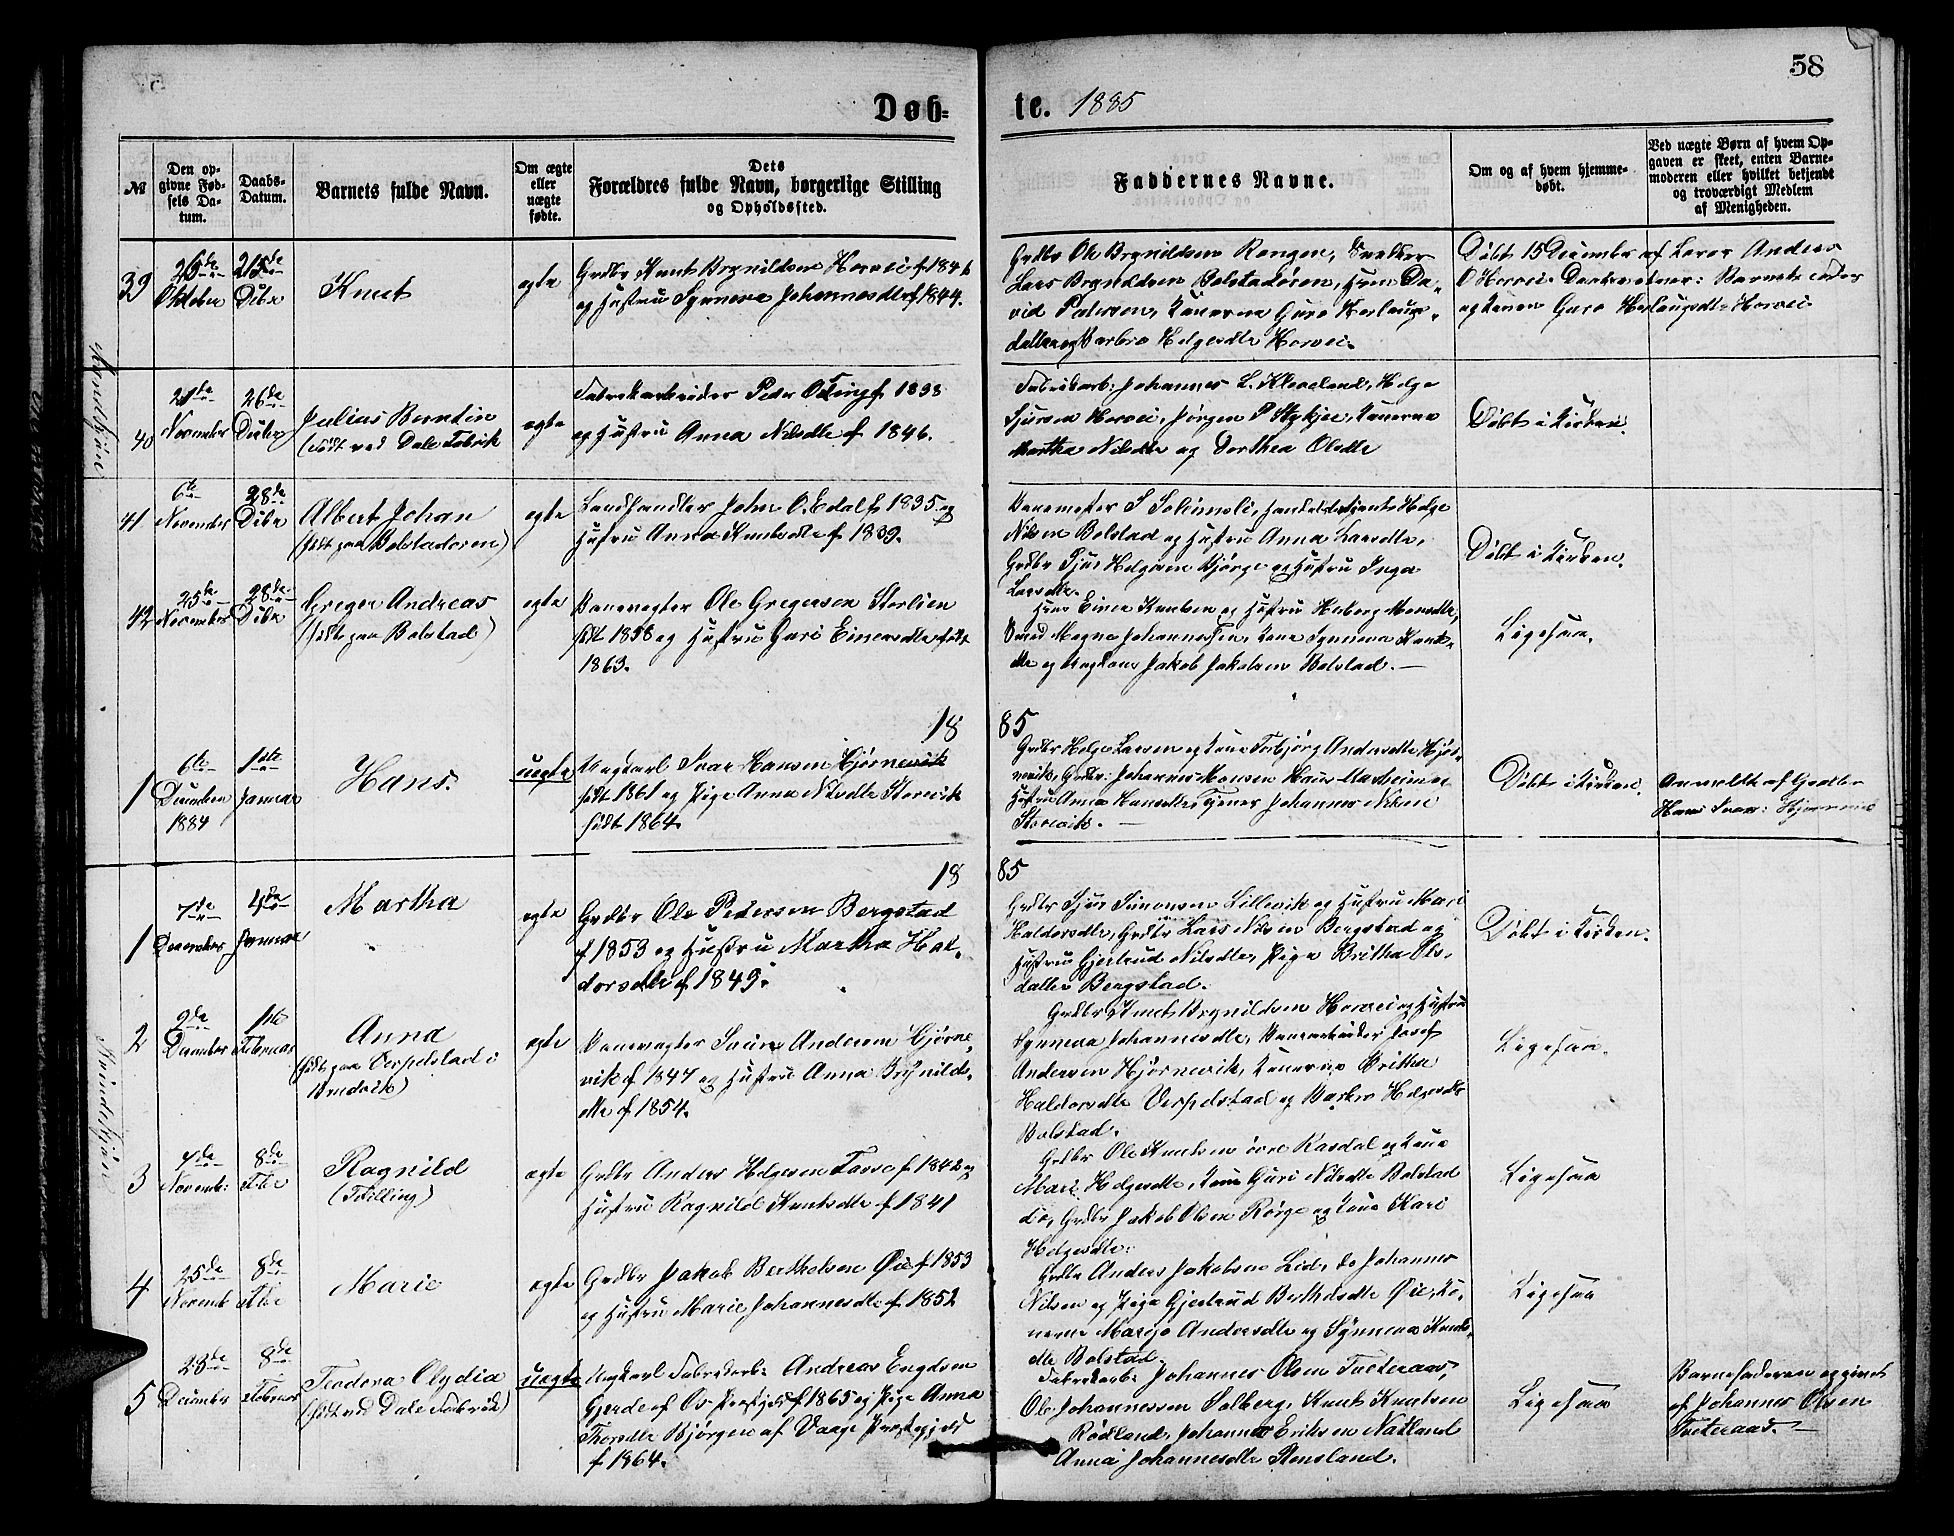 58
Døb=
te. 1885
№
Den op=
givne Fød=
sels Da=
tum.
Daabs=
Datum.
Barnets fulde Navn.
Om ægte
eller
uægte
fødte.
Dets
Forældres fulde Navn, borgerlige Stilling
og Opholdssted.
Faddernes Navne.
Om og af hvem hjemme=
døbt.
Ved uægte Børn af hvem Op=
gaven er skeet, enten Barne=
moderen eller hvilket bekjendt
og troværdigt Medlem
af Menigheden.
39
26de
Oktober
Debr
Knut
egte
Grdbr Knut Brynildsen Horvei f 1846
og Hustru Synneva Johannesdtr f 1844.
Grdbr Ole Brynildsen Rongen, Snekker
Lars Brynildsen Bolstadøren, Huus Da-
vid Pedersen, Konerne Guro Herlaugs-
datter og Barbro Helgesdtr Horvei.
Døbt 15 December af Lærer Anders
O Horvei. Daabsvidner: Barnets Fader
og Konen Guro Herlaugsdtr Horvei
40
21de
November
26de
Decbr
Julius Berntin
(født ved Dale Fabrik
egte
Fabrikarbeider Peder O. f 1838
og Hustru Anna Nilsdtr f 1846.
Fabrikarb: Johannes L. Kleveland, Helge
Sjursen Horvei, Jørgen P. Konerne
Martha Nilsdtr og Dorthea Olsdtr
Døbt i Kirken.
41
6te
November
28de
Debr
Albert Johan
(født paa Bolstadøren)
egte
Landhandler John O. Edal f 1835 og
Hustru Anna Knutsdtr f 1839.
Banemester S Helge
Nilsen Bolstad og Hustru Anna Larsdtr,
Grdbr Sjur Helgesen og Hustru Inga
Larsdtr.
Døbt i Kirken.
42
25de
November
28de
Debr
Greger Andreas
(født paa Bolstad)
egte
Banevogter Ole Gregersen Storlien
født 1858 og Hustru Guri Einersdtr født
1863.
Huus Einer Knutsen og Hustru Herborg Monsdtr,
Smed Magne Johannessen, Kone Synneva Knuts-
dtr og Ungkarl Jakob Jakobsen Bolstad.—
Ligesaa.
1885
1
6te
December
1884
1ste
Januar
Hans.
uegte
Ungkarl Ivar Hansen Hjørnevik
født 1861 og Pige Anna Nilsdtr Storevik
født 1864.
Grdbr Helge Larsen og Kone Torbjørg Andersdtr Hjør-
nevik, Grdbr: Johannes Monsen og
Hustru Anna Hansdtr, Tjener Johannes Nilsen
Storevik.—
Døbt i Kirken.
Anmeldt af Grdbr
Hans Hjørnevik
1885
1
7de
December
4de
Januar
Martha
egte
Grdbr Ole Pedersen Bergstad
f 1853 og Hustru Martha Hal-
dorsdtr f 1849.
Grdbr Sjur Simonsen Lillevik og Hustru Mari
Haldorsdtr, Grdbr Lars Nilsen Bergstad og
Hustru Gjertrud Nilsdtr, Pige Britha Ols-
datter Bergstad.
Døbt i Kirken.
2
2de
December
1ste
Februar
Anna
(født paa Verpelstad i
)
egte
Banevogter Andersen Hjørne-
vik f 1847 og Hustru Anna Brynilds-
dtr f 1854.
Grdbr Knut Brynildsen Horvei og Hustru
Synneva Johannesdtr, Banearbeider Josef
Andersen Hjørnevik, Konerne Britha
Haldorsdtr Verpelstad og Barbro Helgesdtr
Bolstad.
Ligesaa.
3
4de
Novemb:
8de
Febr
Ragnild
(Tvilling)
egte
Grdbr Anders Helgesen f 1842 og
Hustru Ragnild Knutsdtr f 1841
Grdbr Ole Knutsen øvre Rasdal og Kone
Mari Helgesdtr, Kone Guri Nilsdtr Bolstad
do, Grdbr Jakob Olsen Rørge og Kone Kari
Helgesdtr.
Ligesaa
4
25de
Novemb
8de
Febr
Marie
egte
Grdbr Jakob Berthelsen Øie f 1853
og Hustru Marie Johannesdtr f 1852
Grdbr Anders Jakobsen Lid, do Johannes
Nilsen og Pige Gjertrud Berthelsdtr Øie, Ko-
nerne Andersdtr og Synneva Knuts-
dtr Bolstad.
Ligesaa
5
28de
December
8de
Februar
Teodora Olydia
(født ved Dale Fabrik)
uegte
Ungkarl Fabrikarb: Andreas Engelsen
Gjerde af Os Prestgjeld f 1865 og Pige Anna
Thorsdtr Bjørgen af Vaage Prestegjeld
f 1864.
Fabrikarb: Johannes Olsen Tveteraas,
Ole Johannessen Solberg, Knut Knutsen
Rødland, Johannes Eriksen Natland
Anna Johannesdtr Stensland.
Ligesaa
Barnefaderen opgivet
af Johannes Olsen
Tveteraas.—